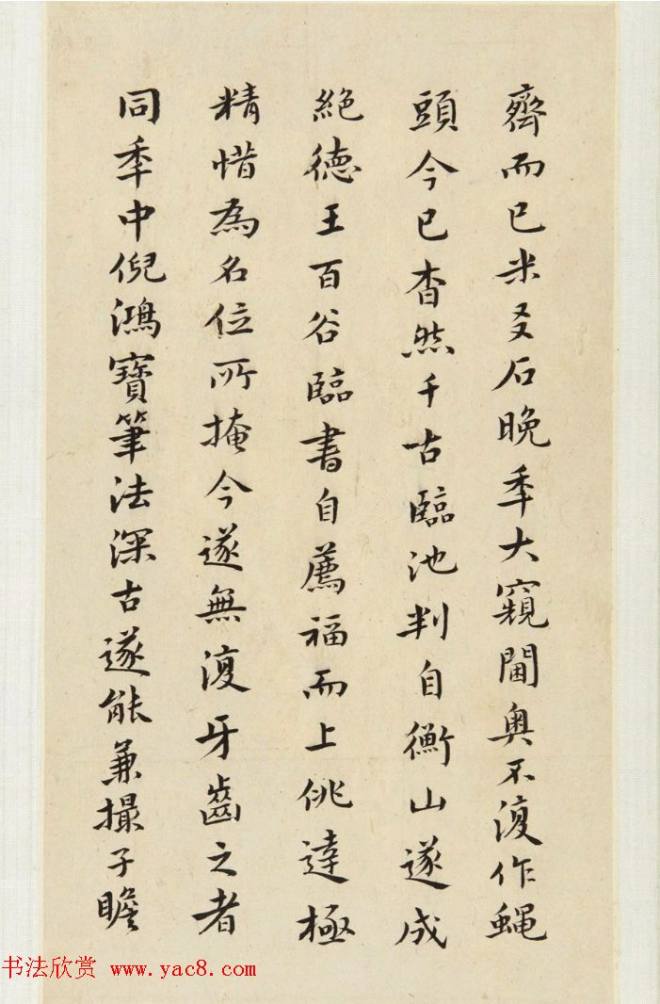 齊而已米友石晚季大窺閫奧不復作蝇
頭今已杳然千古臨池判自衡山遂成
絕德王百谷臨書自薦福而上佻達極
精惜為名位所掩今遂無復牙齒之者
同季中倪鴻寶筆法深古遂能兼撮子瞻
书法欣赏 www.yac8.com